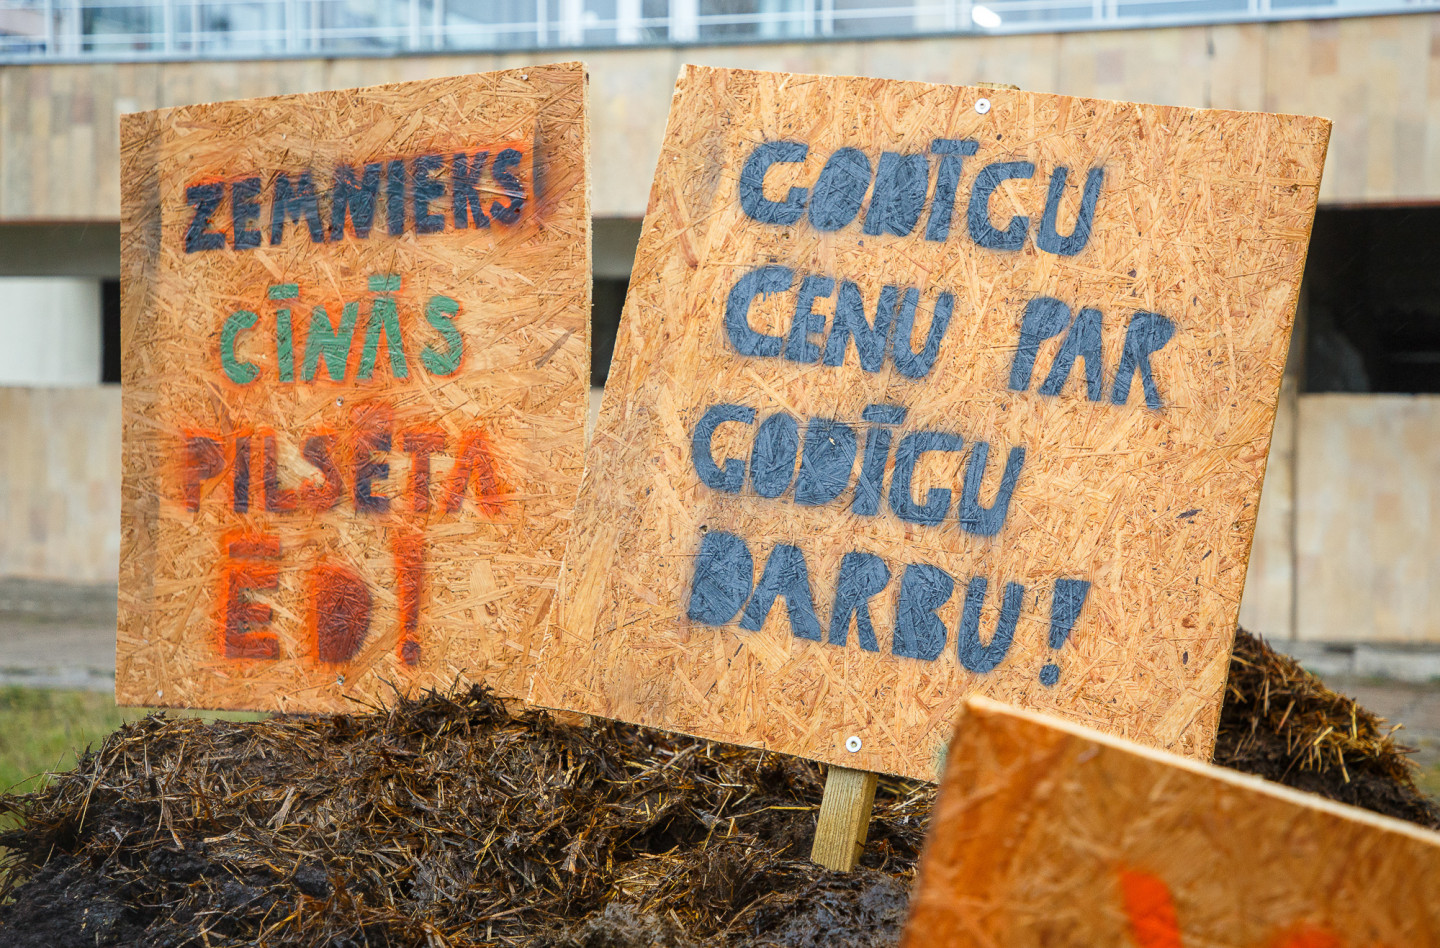 ZEMNIEKS
CĪNĀS
PILSĒTA
ED!
GODĪGU
CENU PAR
GODĪGU
DARBU!